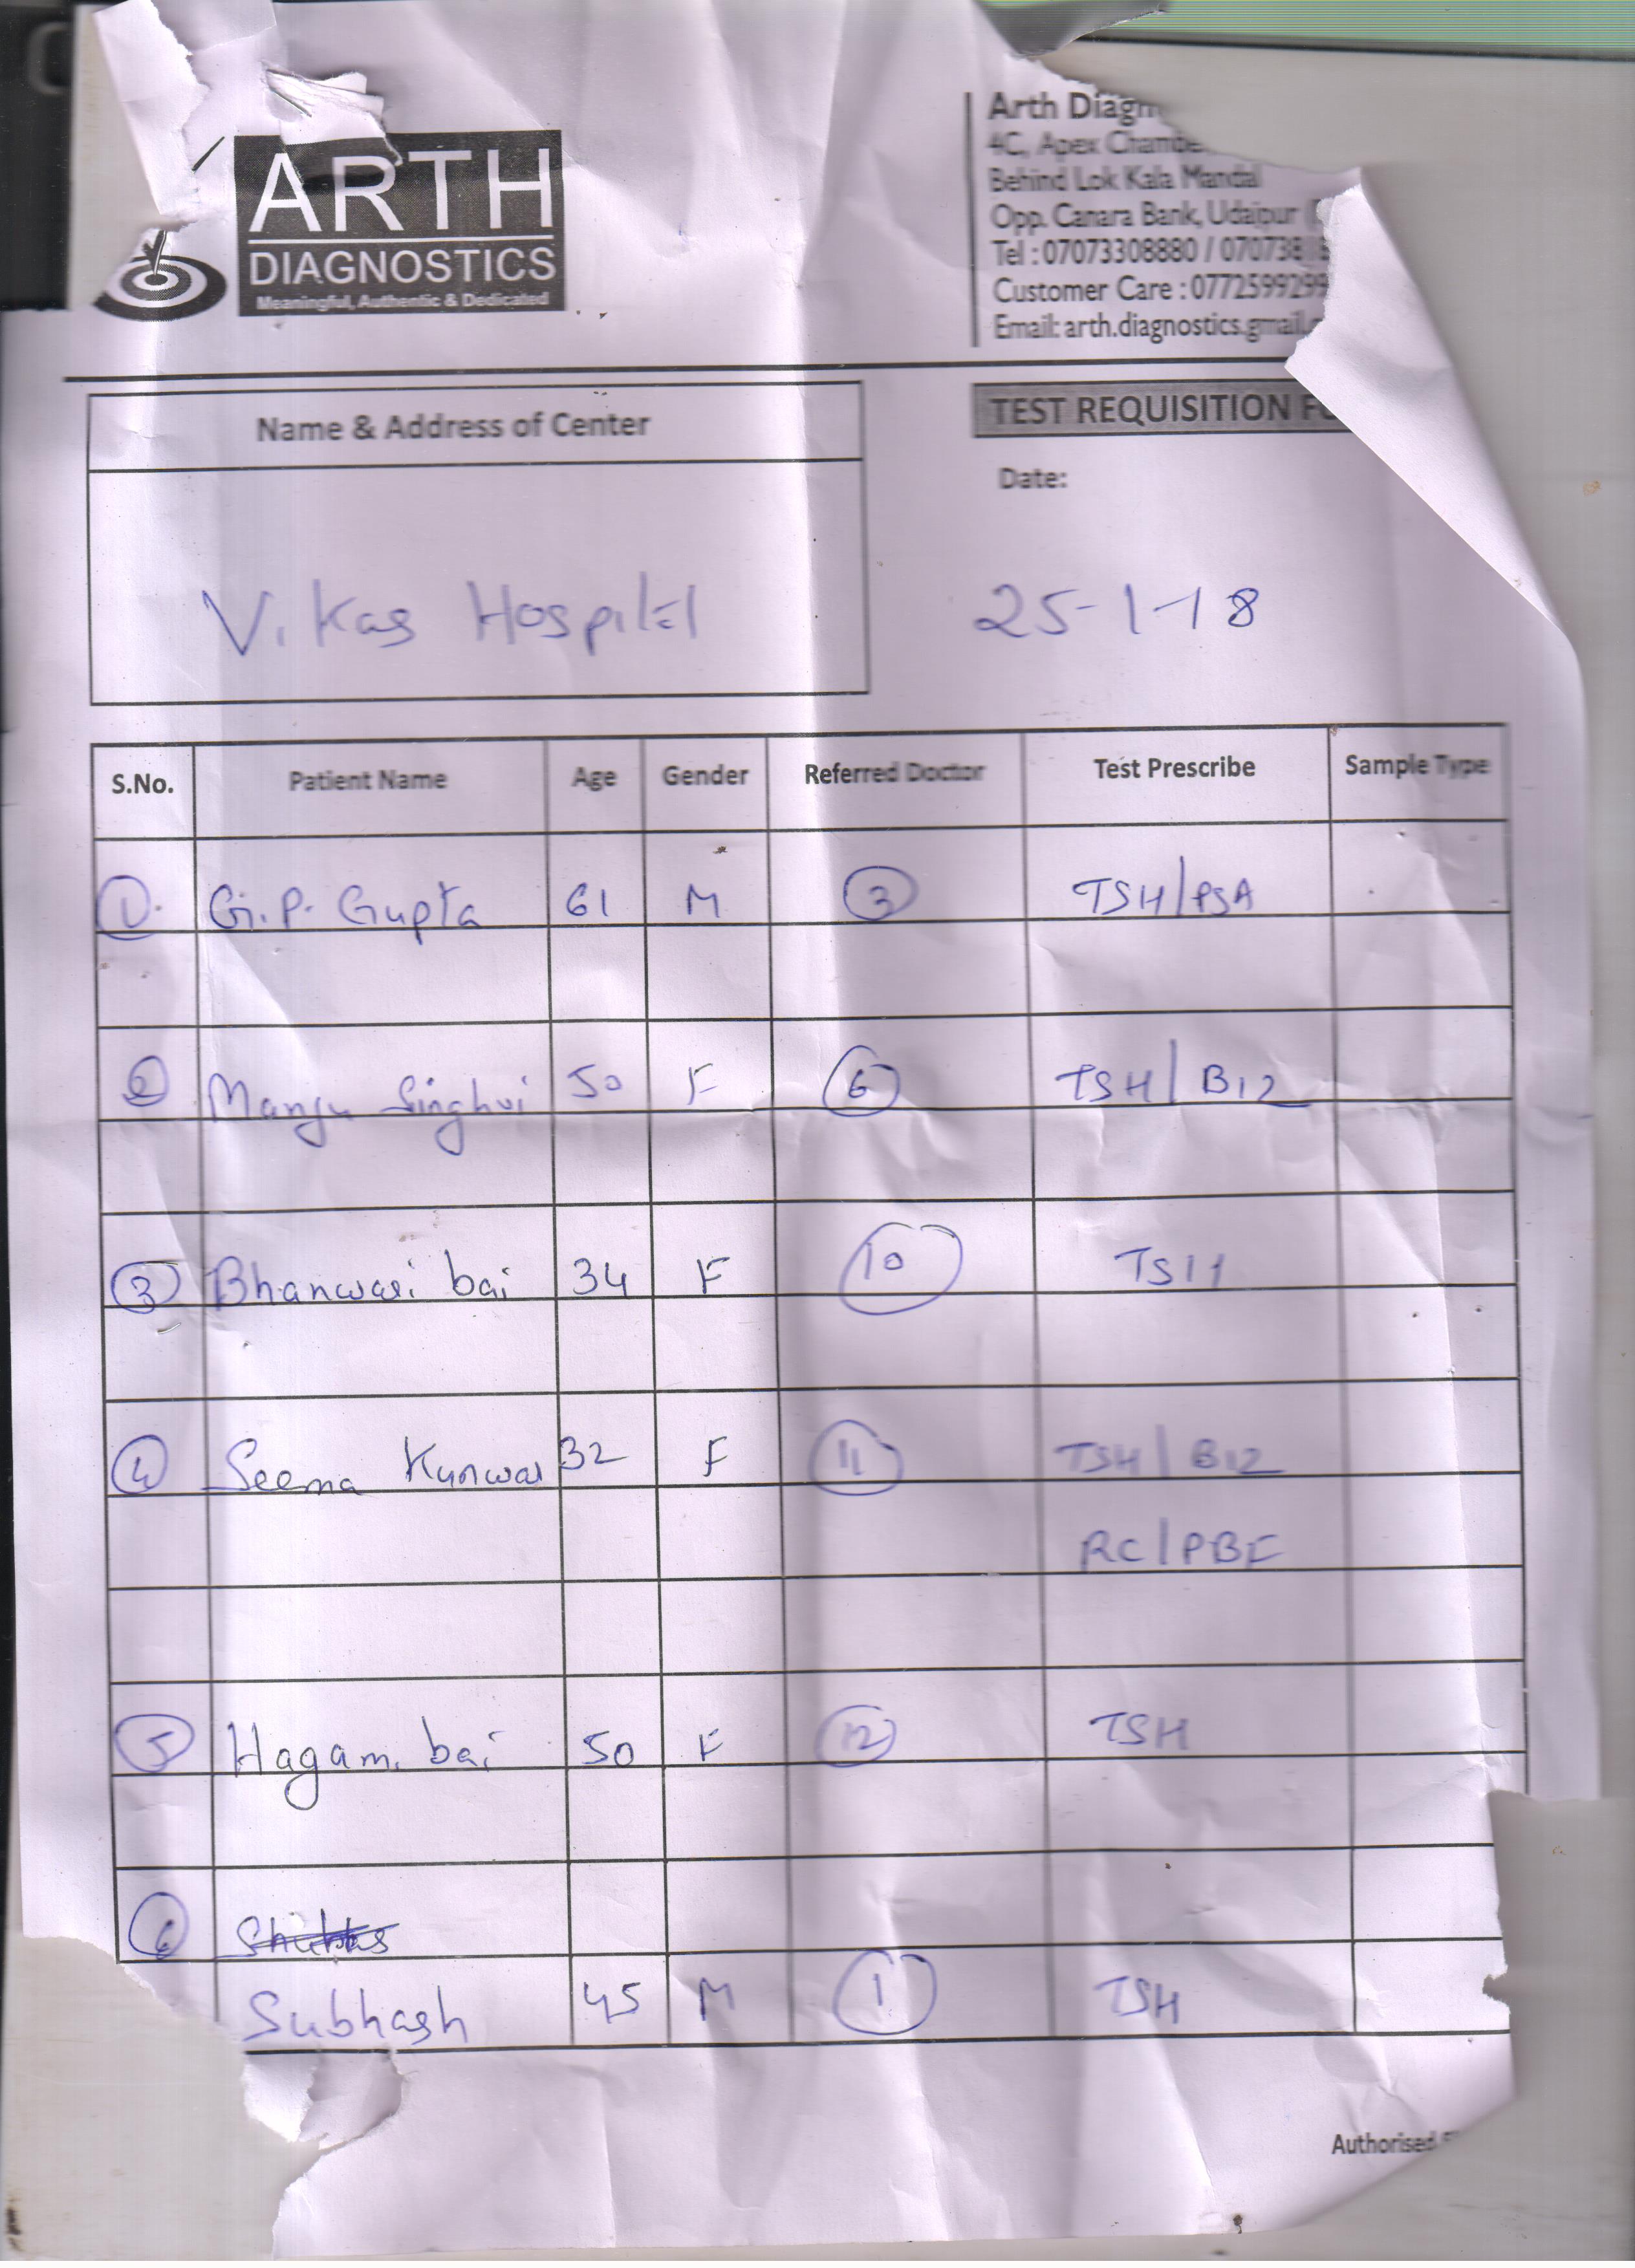 ARTH
DIAGNOSTICS
Meaningful, Authentic & Dedicated
Arth Diagn
4C, Apex Chambe
Behind Lok Kala Mandal
Opp. Canara Bank, Udaipur
Tel : 07073308880 / 070738
Customer Care : 0772599299
Email: arth.diagnostics.gmail.
Name & Address of Center
TEST REQUISITION F
Date:
Vikas Hospital
25-1-18
S.No. Patient Name Age Gender Referred Doctor Test Prescribe Sample Type
1. G.P. Gupta 61 M 3 TSH/PSA
2 Manju Singhvi 50 F 6 TSH/B12
3 Bhanwari bai 34 F 10 TSH
4 Seema Kunwar 32 F 11 TSH/B12
RC/PBF
5 Hagami bai 50 F 12 TSH
6
Subhash 45 M 1 TSH
Authorised